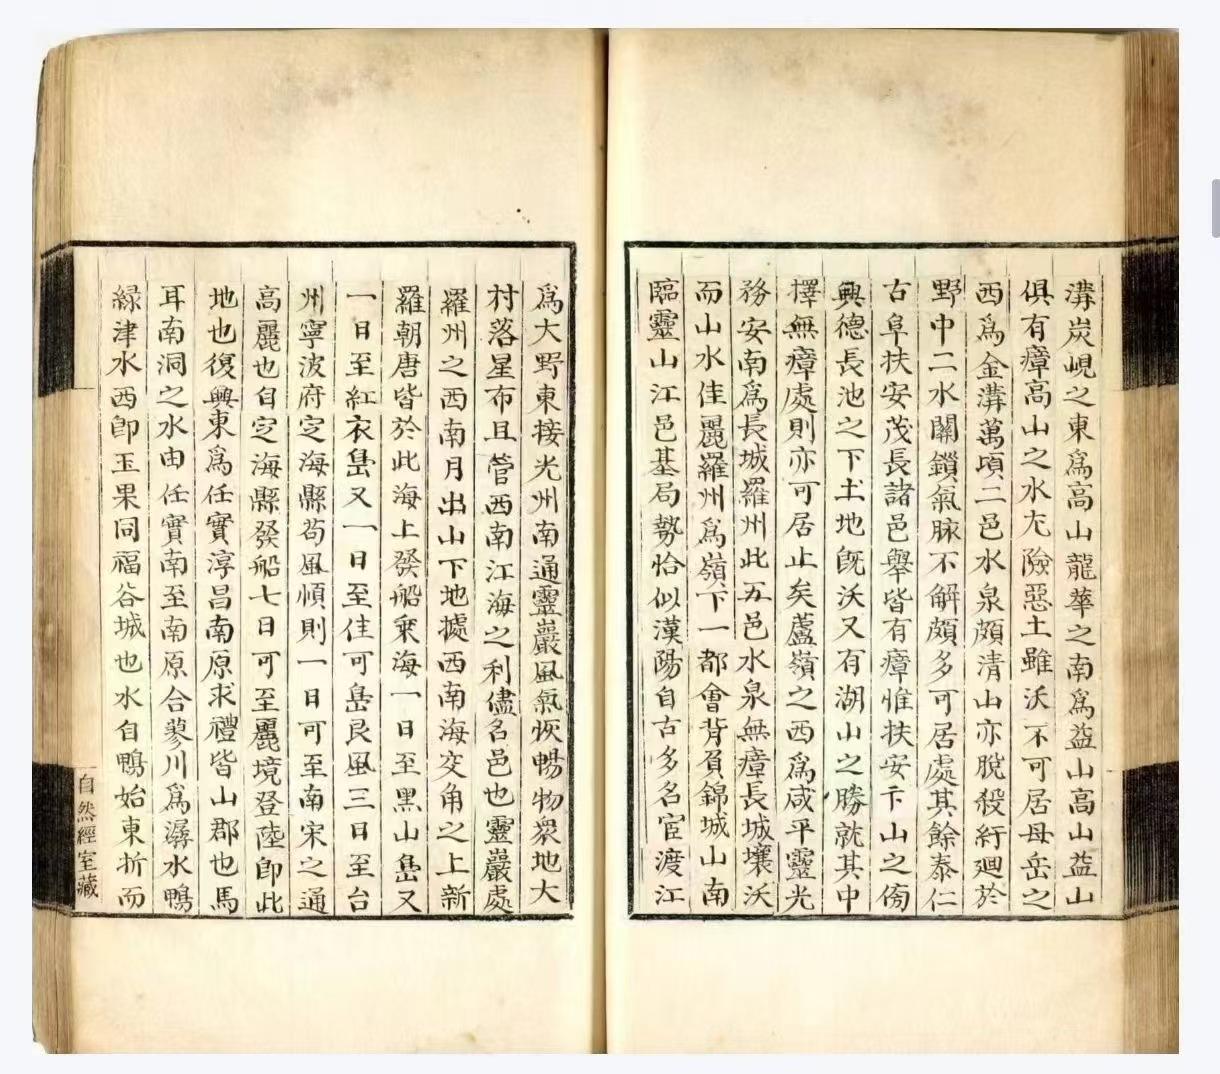 溝炭峴之東爲高山龍華之南爲益山高山益山
俱有瘴高山之水尤險惡土雖沃不可居母岳之
西爲金溝萬頃二邑水泉頗清山亦脫殺紆廻於
野中二水關鎖氣脉不解頗多可居處其餘泰仁
古阜扶安茂長諸邑擧皆有瘴惟扶安卞山之傍
興德長池之下土地旣沃又有湖山之勝就其中
擇無瘴處則亦可居止矣蘆嶺之西爲咸平靈光
務安南爲長城羅州此五邑水泉無瘴長城壤沃
而山水佳麗羅州爲嶺下一都會背負錦城山南
臨靈山江邑基局勢恰似漢陽自古多名宦渡江
爲大野東接光州南通靈巖風氣恢暢物衆地大
村落星布且管西南江海之利儘名邑也靈巖處
羅州之西南月出山下地據西南海交角之上新
羅朝唐皆於此海上發船乘海一日至黑山島又
一日至紅衣島又一日至佳可島艮風三日至台
州寧波府定海縣苟風順則一日可至南宋之通
高麗也自定海縣發船七日可至麗境登陸卽此
地也復興東爲任實淳昌南原求禮皆山郡也馬
耳南洞之水由任實南至南原合蓼川爲潺水鴨
綠津水西卽玉果同福谷城也水自鴨始東折而
自然經室藏